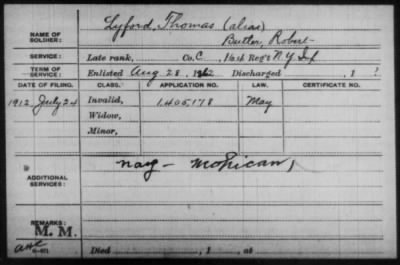 NAME OF SOLDIER: Lyford, Thomas (alias)
Butler, Robert
SERVICE: Late rank, Co. C, Reg't N.Y. Inf
TERM OF SERVICE: Enlisted Aug 28, 1862 Discharged , 1 ?
DATE OF FILING. CLASS. APPLICATION NO. LAW. CERTIFICATE NO.
1912 July 24 Invalid, 1.405,178 May
Widow,
Minor,
ADDITIONAL SERVICES: navy - Mohican,
REMARKS:
M. M.
Died , 1 , at